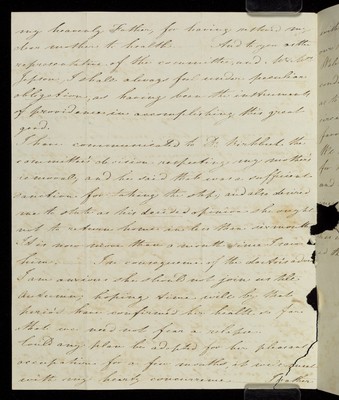 my heavenly Father, for having restored my
dear mother to health. And to you as the
representative of the committee, and Mr Wm
Jepson I shall always feel under peculiar
obligations, as having been the instruments
of providence, in accomplishing this great
good.
I have communicated to Dr the
committee's decision respecting my mother's
removal, and he said that was a sufficient
sanction for taking the step, and also desired
me to state as his decided opinion she ought
not to return home in less than six months
It is now more than a month since I saw
him. In consequence of the doctor's advice
I am anxious she should not join us till
Autumn, hoping time will by that
period have confirmed her health so far
that we need not fear a relapse.
Could any plan be adopted for her pleasant
occupation for a few months, it would meet
with my hearty concurrence. Rather